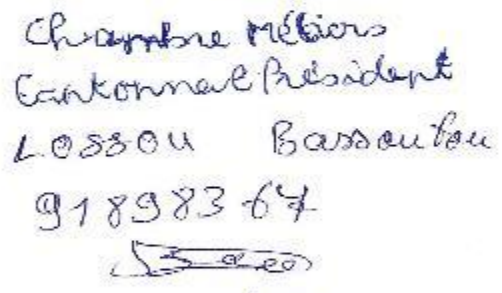 Chambre Métiers
Cantonnal Président
LOSSOU Bassoutou
918983 67